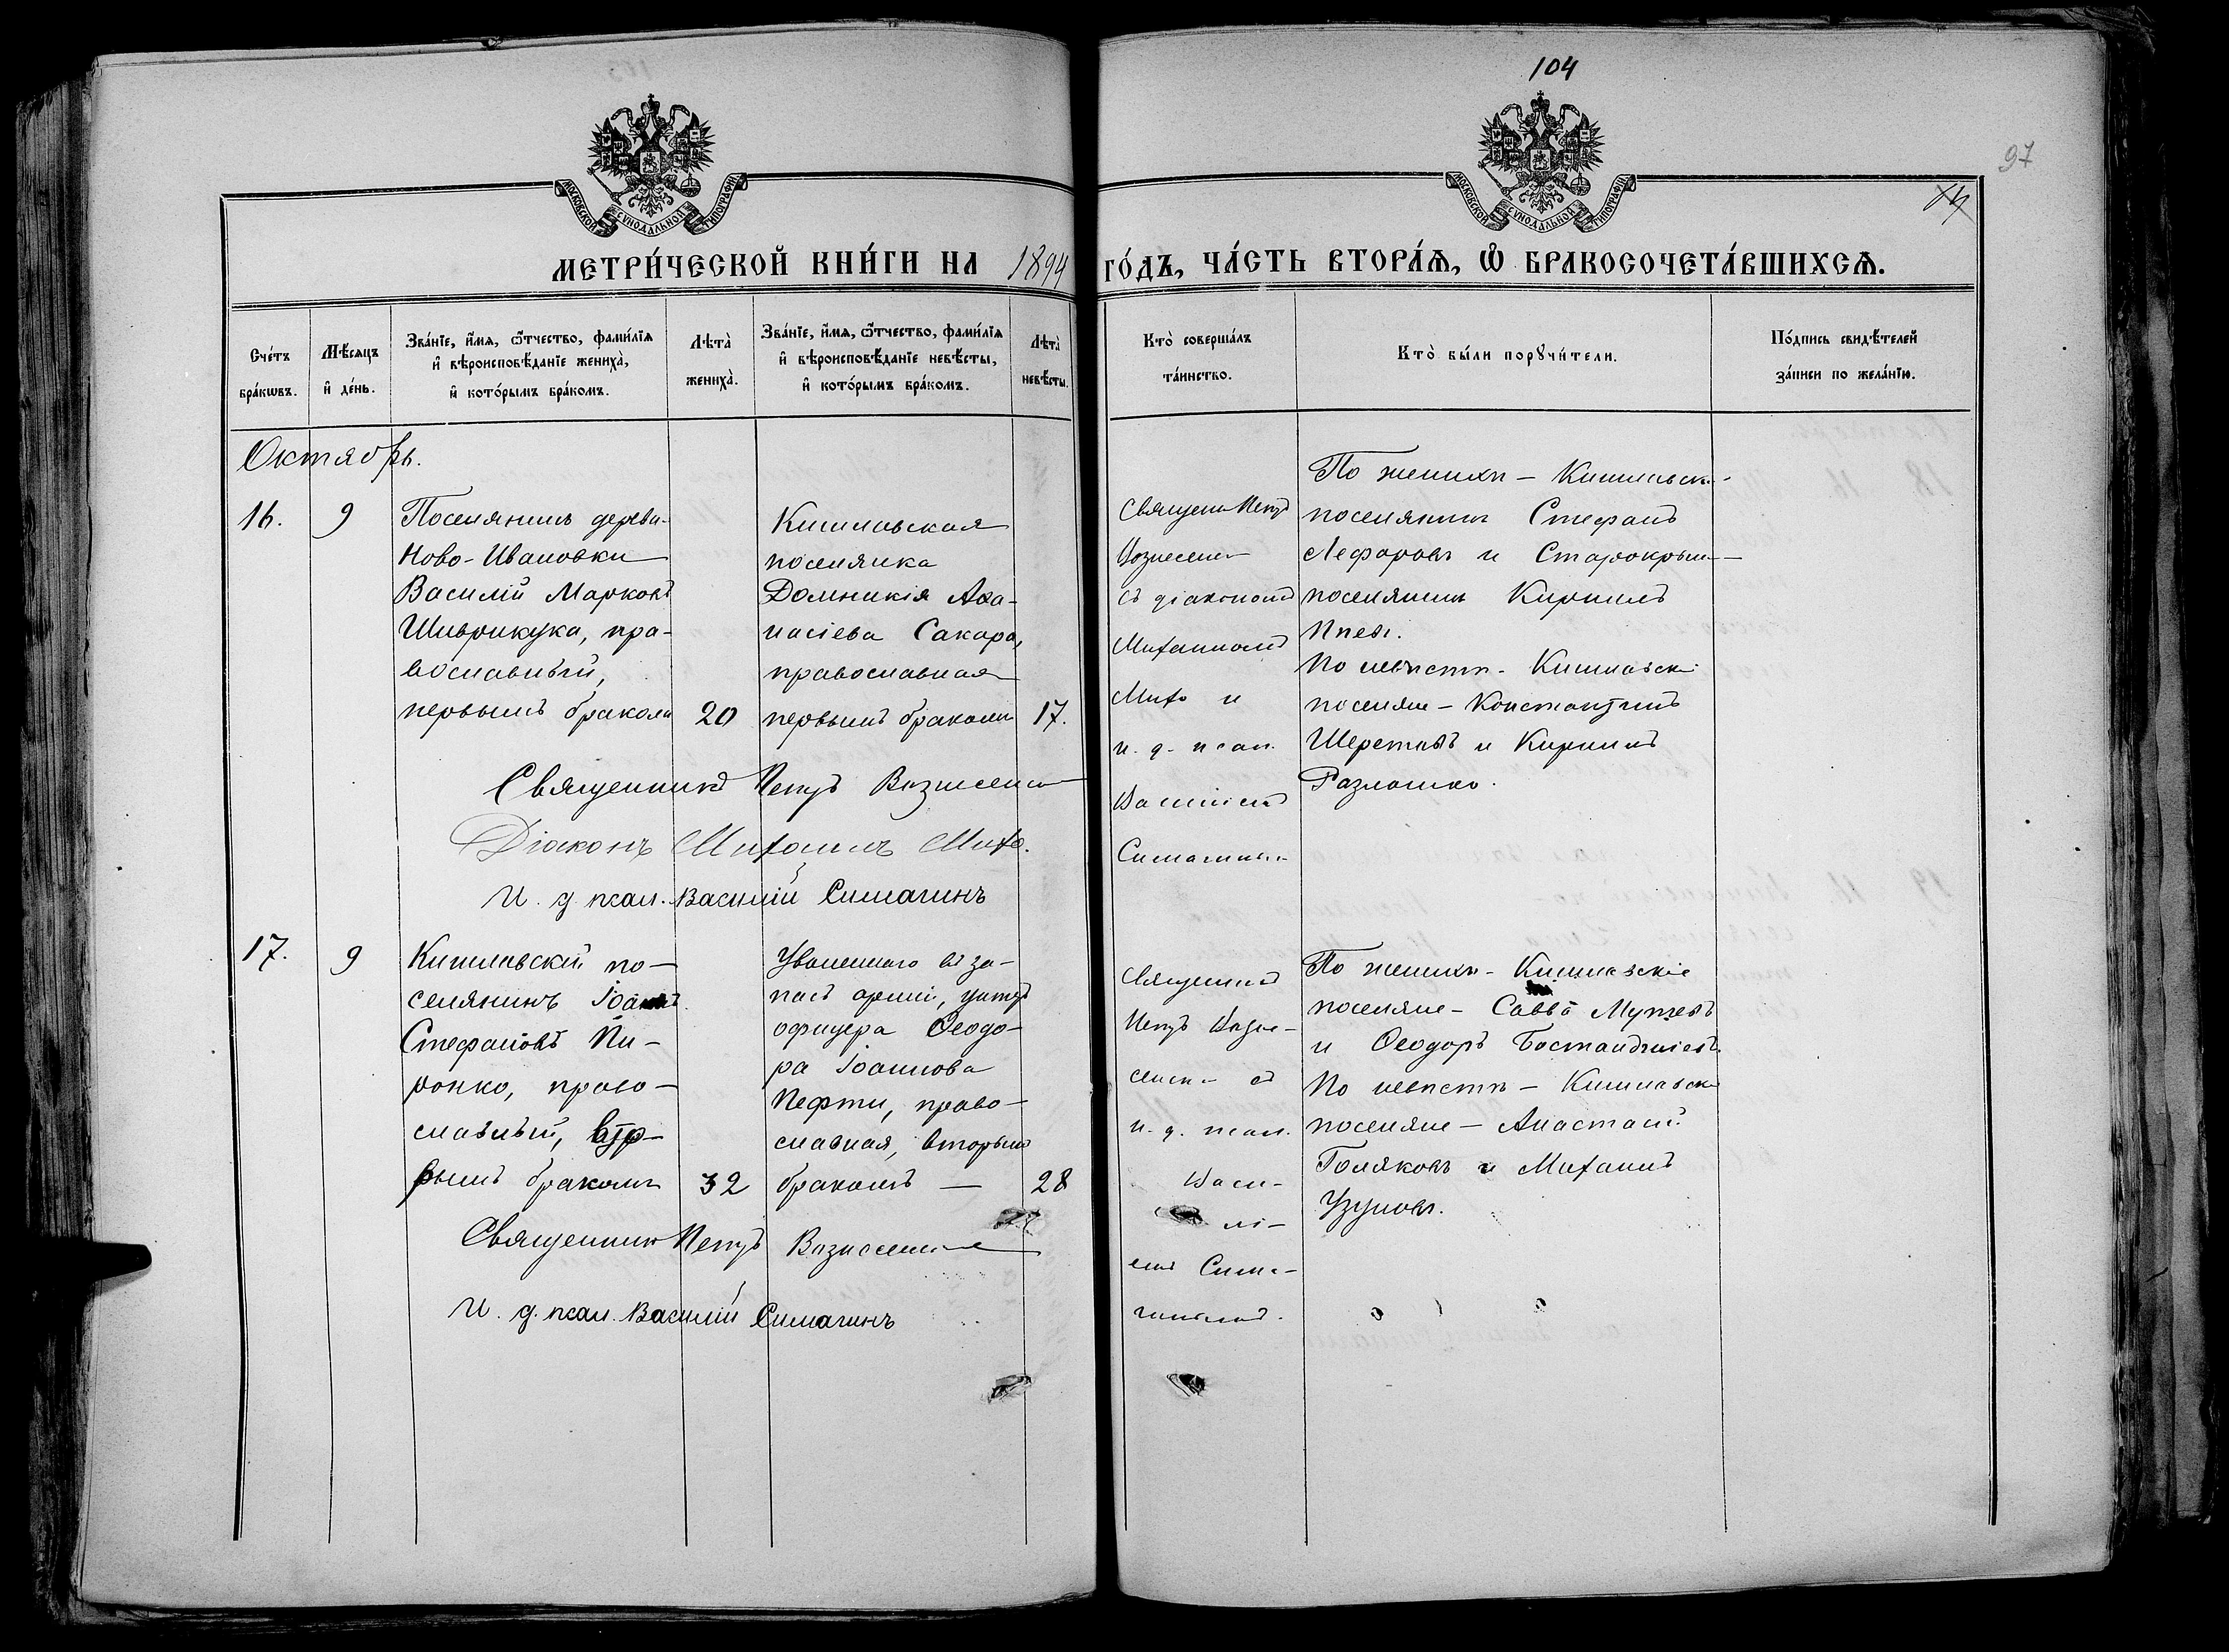 104
97
МОСКОВСКОЙ СѴНОДАЛЬНОЙ ТИПОГРАФІИ
МОСКОВСКОЙ СѴНОДАЛЬНОЙ ТИПОГРАФІИ
МЕТРИ́ЧЕСКОЙ КНИ́ГИ НА 1894 ГО́ДЪ, ЧА́СТЬ ВТОРА́Я, Ѿ БРАКОСОЧЕТА́ВШИХСѦ.
Сче́тъ бра́кѡвъ.
Мѣ́сяцъ и҆ де́нь.
Зва́нїе, и҆́мѧ, ѻ҆́тчество, фами́лїѧ
и҆ вѣроисповѣ́данїе жениха̀,
и҆ кото́рымъ бра́комъ.
Лѣта̀ жениха̀.
Зва́нїе, и҆́мѧ, ѻ҆́тчество, фами́лїѧ
и҆ вѣроисповѣ́данїе невѣ́сты,
и҆ кото́рымъ бра́комъ.
Лѣта̀ невѣ́сты.
Кто̀ соверша́лъ
та́инство.
Кто̀ бы́ли порꙋчи́тели.
По́дпись свидѣ́телей
за́писи по жела́нїю.
Октябрь.
16.
9
Поселянинъ дерев.
Ново-Ивановки
Василій Марковъ
Шиврикука, пра-
вославный,
первымъ бракомъ
20
Кишлавская
поселянка
Домникія Аѳа-
насіева Сакара,
православная
первымъ бракомъ
17.
Священ. Петръ
Вознесен.
съ діакономъ
Михаиломъ
Михо и
и. д. псал.
Василіемъ
Симагин.
По женихѣ - Кишлавск.
поселянинъ Стефанъ
и Старокрым.
поселянинъ Кириллъ
По невѣстѣ - Кишлавскі
поселяне - Константинъ
Шеретовъ и Кириллъ
Священникъ Петръ Вознесен
Діаконъ Михаилъ Михо.
И. д. псал. Василій Симагинъ
17.
9
Кишлавскій по-
селянинъ Іоаннъ
Стефановъ Пи-
ронко, право-
славный, вто-
рымъ бракомъ
32
Уволеннаго въ за-
пасъ арміи, унтеръ
офицера Ѳеодо-
ра Іоаннова
Нефти, право-
славная, вторымъ
бракомъ —
28
Священникъ
Петръ Возне-
сенск. съ
и. д. псал.
Васи-
лі-
емъ Сима-
гинымъ.
По женихѣ - Кишлавскіе
поселяне - Савва
и Ѳеодоръ Бостанджіевъ.
По невѣстѣ - Кишлавск
поселяне - Анастасій
Голяковъ и Михаилъ
Узуновъ.
Священникъ Петръ Вознесенск
И. д. псал. Василій Симагинъ